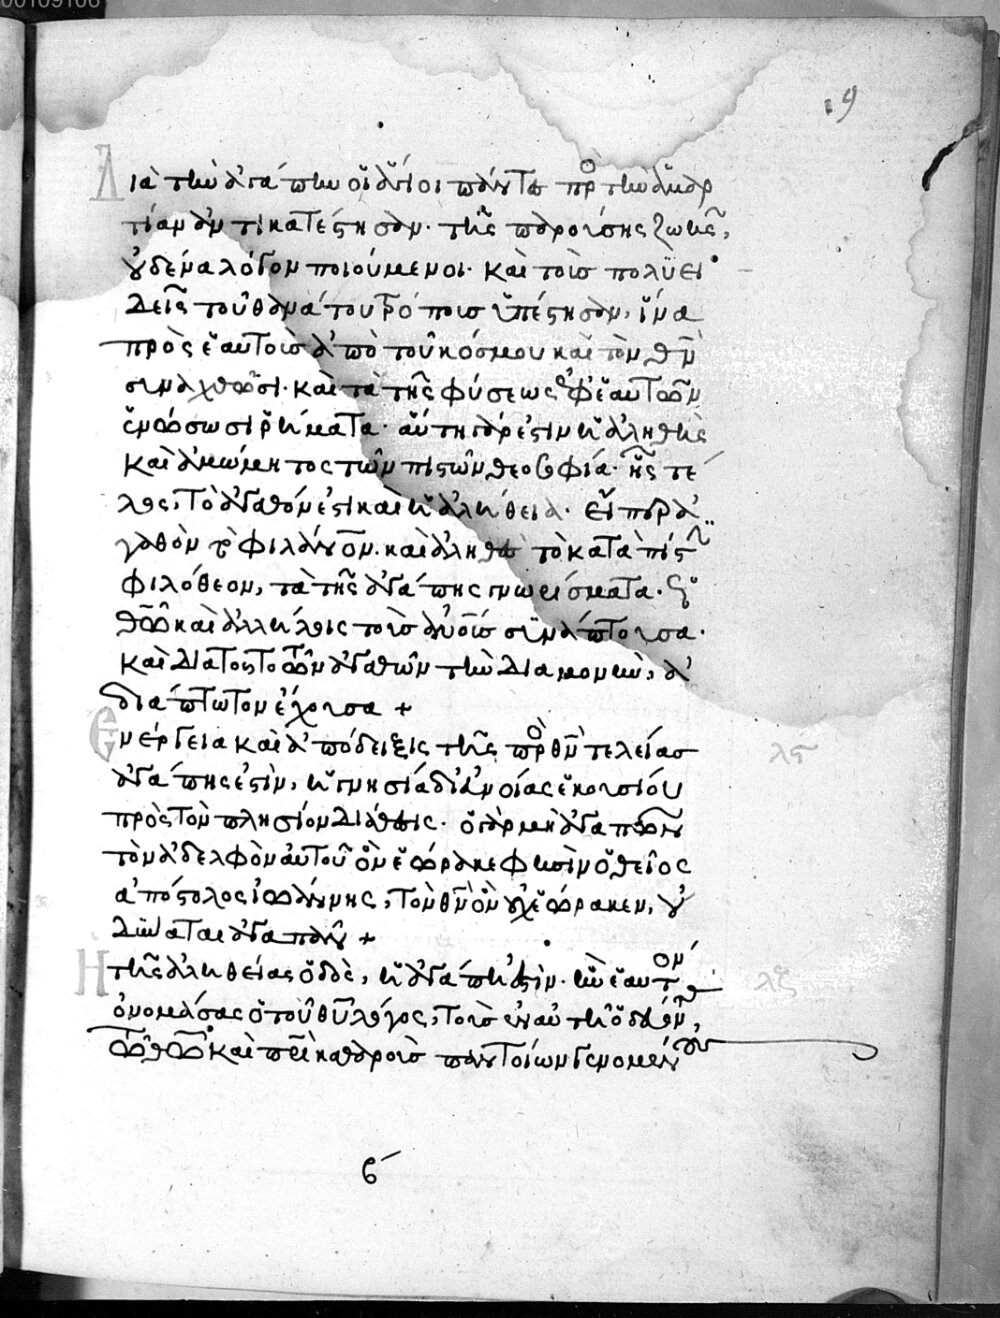 00109106
19
Διὰ τὴν ἀγάπην οἱ ἅγιοι πάντες πρὸς τὴν ἁμαρ
τίαν ἀντικατέστησαν. τῆς παρούσης ζωῆς,
οὐδένα λόγον ποιούμενοι. καὶ τοῖς πολυει
δεῖς τοῦ θανάτου τρόποις ὑπέστησαν, ἵνα
πρὸς ἑαυτοὺς ἀπὸ τοῦ κόσμου καὶ τὸν θν
συναχθῶσι. καὶ τὰ τῆς φύσεως ἐφ' ἑαυτῶν
ἑνώσωσι ῥήγματα. αὕτη γάρ ἐστιν ἡ ἀληθὴς
καὶ ἀμώμητος τῶν πιστῶν θεοσοφία. ἧς τέ
λος, τὸ ἀγαθόν ἐστι καὶ ἡ ἀλήθεια. εἴπερ ἀ
γαθὸν τὸ φιλάνθρωπον. καὶ ἀληθὲς τὸ κατὰ πίστιν
φιλόθεον, τὰ τῆς ἀγάπης γνωρίσματα.
θῶ καὶ ἀλλήλοις τοὺς ἀνους συνάπτουσα.
καὶ διὰ τοῦτο τῶν ἀγαθῶν τὴν διαμονὴν, ἀ
διάπτωτον ἔχουσα +
Ἐνέργεια καὶ ἀπόδειξις τῆς πρὸς θν τελείας
ἀγάπης ἐστὶν, ἡ γνησία δι' ἀνοίας ἑκουσίου
πρὸς τὸν πλησίον διάθεσις. ὁ γὰρ μὴ ἀγαπῶν
τὸν ἀδελφὸν αὐτοῦ ὃν ἑώρακε φησὶν ὁ θεῖος
ἀπόστολος ἰωάννης, τὸν θν ὃν οὐχ ἑώρακεν, οὐ
δύναται ἀγαπᾶν +
λς
Ἡ τῆς ἀληθείας ὁδὸς, ἡ ἀγάπη ἐστὶν. ἣν ἑαυτὸν
ὀνομάσας ὁ τοῦ θυ λόγος, τοὺς ἐν αὐτῇ ὁδεύοντας,
τῶ θῶ καὶ πρι καθαροὺς παντοίων γενομένους
λζ
ϛ